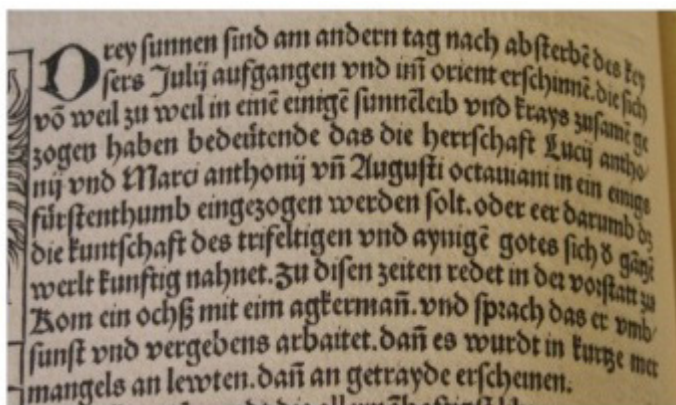 Drey sunnen sind am andern tag nach absterbē des key
sers Julij aufgangen vnd im̄ orient erschinnē. die sich
vō weil zu weil in einē einigē sunnēleib vnd krays zusamē ge
zogen haben bedeütende das die herrschaft Lucij antho
nij vnd Marci anthonij vn̄ Augusti octauiani in ein einigs
fürstenthumb eingezogen werden solt. oder eer darumb dz
die kuntschaft des trifeltigen vnd aynigē gotes sich d̕ gātzē
werlt kunftig nahnet. Zu disen zeiten redet in der vorstatt zu
Rom ein ochß mit eim agkerman̄. vnd sprach das er vmb
sunst vnd vergebens arbaitet. dan̄ es wurdt in kurtze mer
mangels an lewten. dan̄ an getrayde erscheinen.